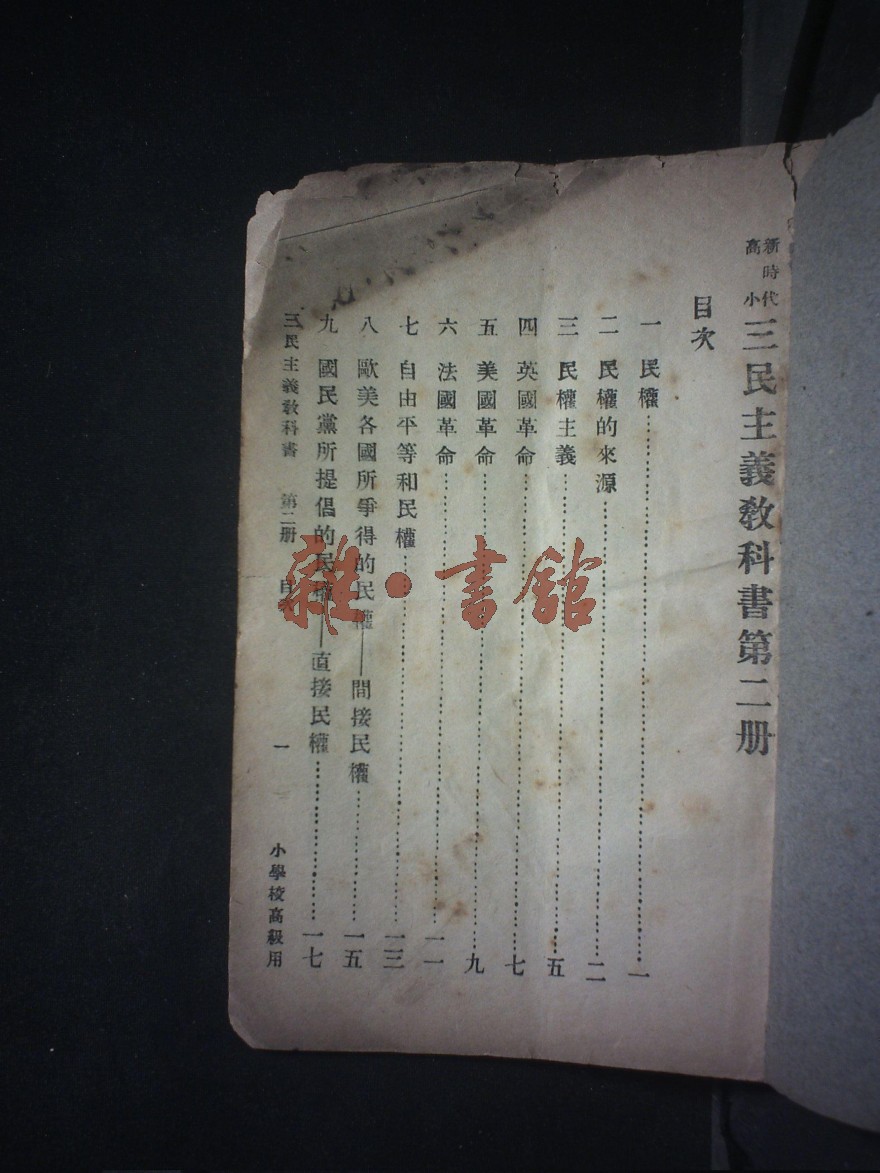 新時代
高小
三民主義教科書第二册
目次
一 民權……一
二 民權的來源……二
三 民權主義……五
四 英國革命……七
五 美國革命……九
六 法國革命……一一
七 自由平等和民權……一三
八 歐美各國所爭得的民權——間接民權……一五
九 國民黨所提倡的民權——直接民權……一七
三民主義教科書 第二册 目次 一 小學校高級用
雜·書館